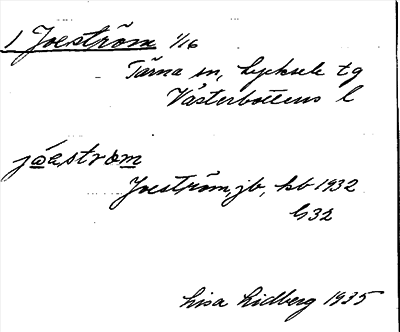 1 Joeström 1/16
Tärna sn, Lycksele tg
Västerbottens l
jåastrøm
Joeström, jb, kb 1932
G32
Lisa Lidberg 1935